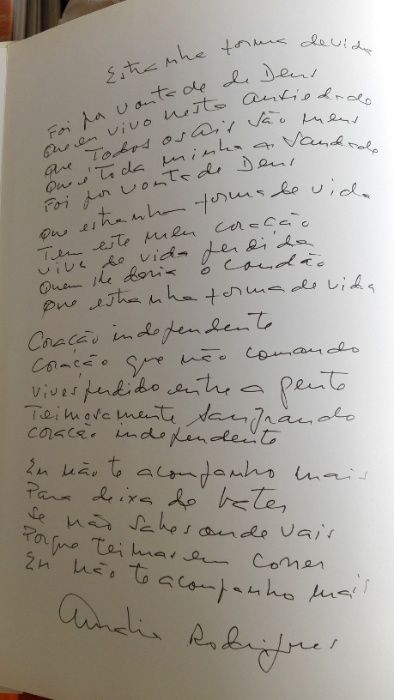 Estranha forma de vida
Foi por vontade de Deus
Que eu vivo nesta ansiedade
Que Todos os ais são meus
Que é Toda minha a saudade
Foi por vontade de Deus
Que estranha forma de vida
Tem este meu coração
Vive de vida perdida
Quem lhe daria o condão
Que estranha forma de vida
Coração independente
Coração que não comando
Vives perdido entre a gente
Teimosamente sangrando
Coração independente
Eu não te acompanho mais
Para deixa de bater
Se não sabes onde vais
Porque teimas em correr
Eu não te acompanho mais
Amália Rodrigues